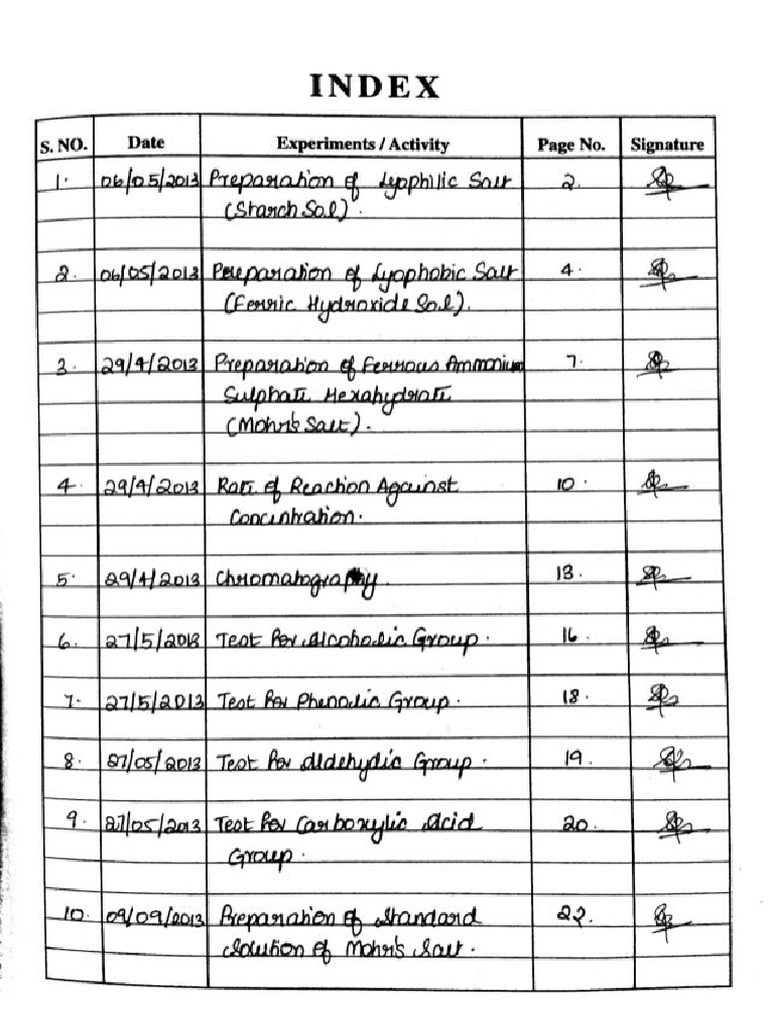 INDEX
S. NO. Date Experiments / Activity Page No. Signature
1. 06/05/2013 Preparation of Lyophilic Salt 2.
(Starch Sol).
2. 06/05/2013 Preparation of Lyophobic Salt 4.
(Ferric Hydroxide Sol).
3. 29/4/2013 Preparation of Ferrous Ammonium 7.
Sulphate Hexahydrate
(Mohr's Salt).
4. 29/4/2013 Rate of Reaction Against 10.
Concentration.
5. 29/4/2013 Chromatography. 13.
6. 27/5/2013 Test for Alcoholic Group. 16.
7. 27/5/2013 Test for Phenolic Group. 18.
8. 27/05/2013 Test for Aldehydic Group. 19.
9. 27/05/2013 Test for Carboxylic Acid 20.
Group.
10. 09/09/2013 Preparation of Standard 22.
Solution of Mohr's Salt.